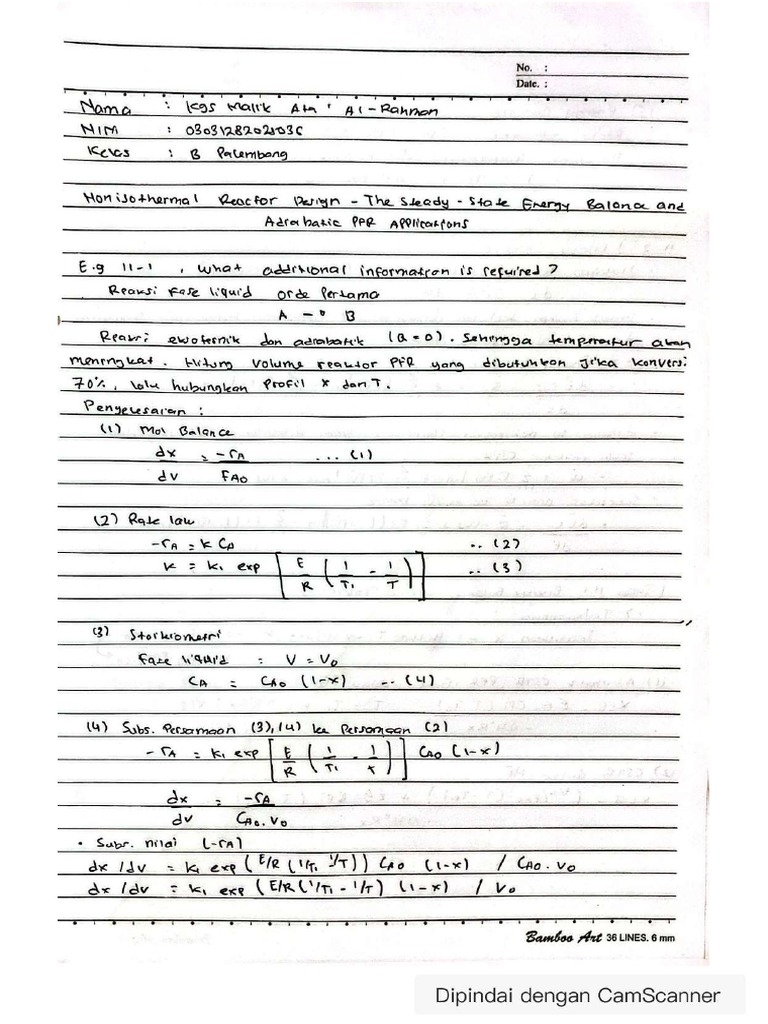 No. :
Date. :
Nama : Kgs Malik Ata' Al-Rahman
NIM
Kelas : B Palembang
Nonisothermal Reactor Design - The Steady-State Energy Balance and
Adiabatic PFR Applications
E.g 11-1, what additional information is required?
Reaksi Fase liquid orde Pertama
A → B
Reaksi eksotermik dan adiabatik (Q = 0). Sehingga temperatur akan
meningkat. Hitung volume reaktor PFR yang dibutuhkan jika konversi
70%, lalu hubungkan Profil x dan T.
Penyelesaian :
(1) Mol Balance
dx/dv = -rA/FA0 ... (1)
(2) Rate law
-rA = k CA .. (2)
k = k1 exp [E/R (1/T1 - 1/T)] .. (3)
(3) Stoikiometri
Fase liquid : V = V0
CA = CA0 (1-x) .. (4)
(4) Subs. Persamaan (3), (4) ke Persamaan (2)
-rA = k1 exp [E/R (1/T1 - 1/T)] CA0 (1-x)
dx/dv = -rA/CA0.V0
• Subs. nilai (-rA)
dx/dv = k1 exp (E/R (1/T1 1/T)) CA0 (1-x) / CA0.V0
dx/dv = k1 exp (E/R (1/T1 - 1/T) (1-x) / V0
Bamboo Art 36 LINES. 6 mm
Dipindai dengan CamScanner